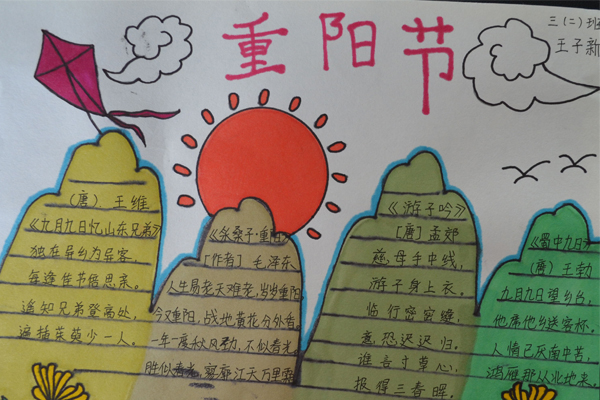 重阳节
三(二)班
王子新
(唐)王维
《九月九日忆山东兄弟》
独在异乡为异客,
每逢佳节倍思亲。
遥知兄弟登高处,
遍插茱萸少一人。
《采桑子·重阳》
[作者]毛泽东
人生易老天难老,岁岁重阳
今又重阳,战地黄花分外香。
一年一度秋风劲,不似春光
胜似春光,寥廓江天万里霜
《游子吟》
[唐]孟郊
慈母手中线,
游子身上衣。
临行密密缝,
意恐迟迟归。
谁言寸草心,
报得三春晖。
《蜀中九日》
(唐)王勃
九月九日望乡台,
他席他乡送客杯。
人情已厌南中苦,
鸿雁那从北地来。